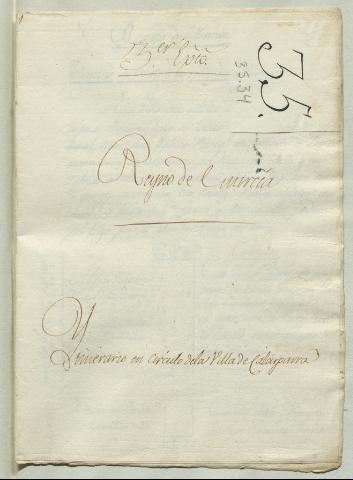 3.er Expto.
35.
35.34
Reyno de Murcia
Ytinerario en circulo de la Villa de Calasparra